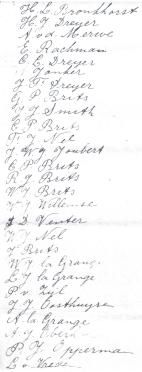 H. L. Bronkhorst
H. J. Dreyer
A. v d. Merwe
E. Rachman
C. E. Dreyer
Jonker
J. F. Dreyer
G. P. Brits
V. J. Smith
C. P. Brits
T. J. Nel
J W G Joubert
E P Brits
R J Brits
W J Brits
Willemse
J D Venter
W J Nel
J Brits
W J la Grange
L J la Grange
P v Zijl
J J Oosthuyse
A la Grange
A J
P J Epperma
L v